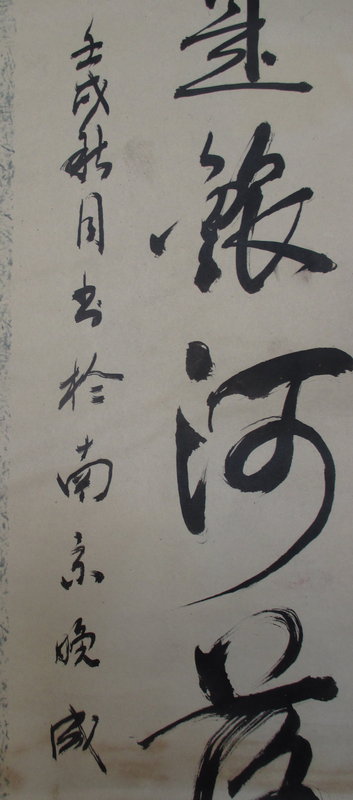 是銀河落
壬戌秋月书於南京晚成